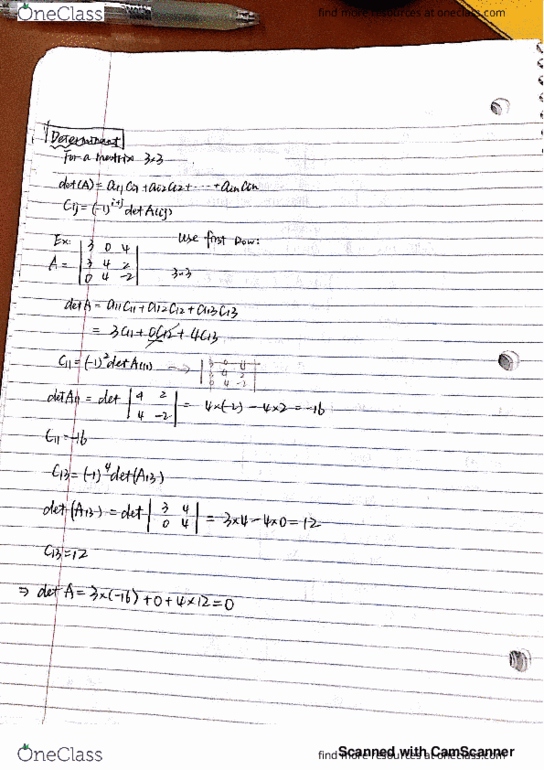 OneClass
find more resources at oneclass.com
Determinant
For a matrix 3×3
det(A) = a11 C11 + a12 C12 + ... + a1n C1n
Cij = (-1)^i+j det A(ij)
Ex: Use first row:
A = | 3 0 4 |
| 3 4 2 | 3×3
| 0 4 -2 |
det A = a11 C11 + a12 C12 + a13 C13
= 3C11 + 0C12 + 4C13
C11 = (-1)^2 det A(11) →
det A11 = det | 4 2 | = 4×(-2) - 4×2 = -16
| 4 -2 |
C11 = -16
C13 = (-1)^4 det(A13)
det(A13) = det | 3 4 | = 3×4 - 4×0 = 12
| 0 4 |
C13 = 12
⇒ det A = 3×(-16) + 0 + 4×12 = 0
OneClass
find more resources at oneclass.com
Scanned with CamScanner